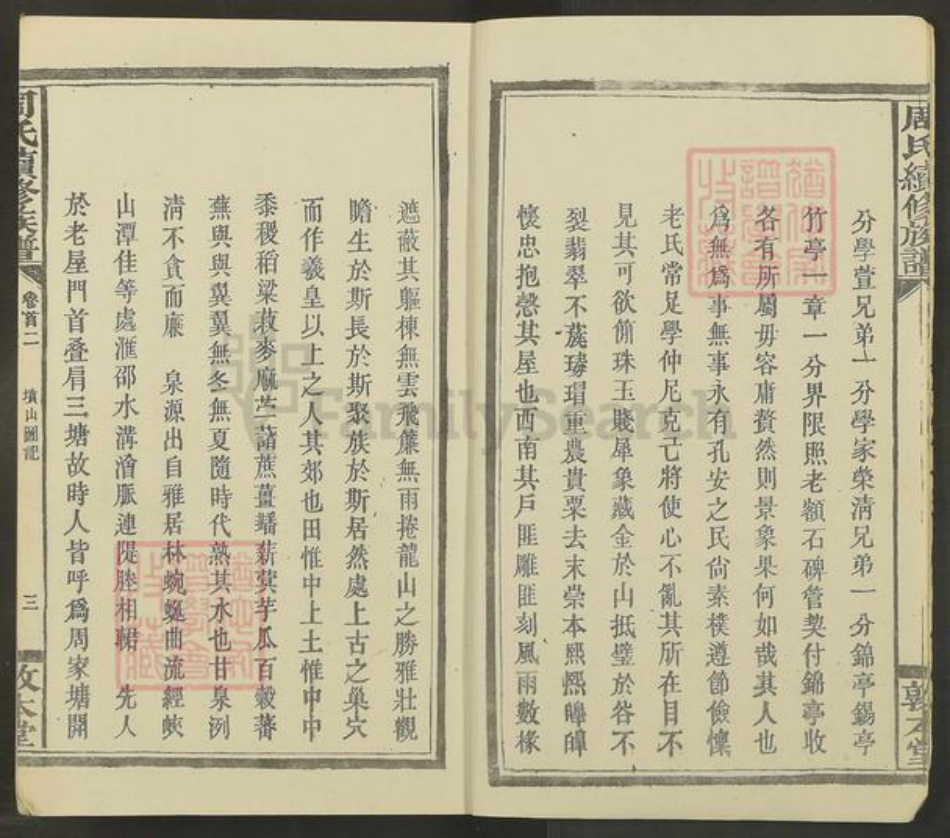 周氏續修族譜
敦本堂
分學萱兄弟一分學家榮淸兄弟一分錦亭錫亭
竹亭一章一分界限照老額石碑管契付錦亭收
各有所屬毋容庸贅然則景象果何如哉其人也
爲無爲事無事永有孔安之民尙素樸遵節儉懷
老氏常足學仲尼克己將使心不亂其所在目不
見其可欲飾珠玉賤犀象藏金於山抵璧於谷不
裂翡翠不蔑瑇瑁重農貴粟去末崇本熙熙皞皞
懷忠抱慤其屋也西南其戶匪雕匪刻風雨數椽
遮蔽其軀棟無雲飛簾無雨捲龍山之勝雅壯觀
瞻生於斯長於斯聚族於斯居然處上古之巢穴
而作羲皇以上之人其郊也田惟中上土惟中中
黍稷稻梁菽麥麻苎藷蔗薑 薪 芋瓜百穀蕃
蕪與與翼翼無冬無夏隨時代熟其水也甘泉洌
淸不貪而廉 泉源出自雅居林蜿蜒曲流經峽
山潭佳等處滙邵水溝澮脈連隄塍相 先人
於老屋門首叠肩三塘故時人皆呼爲周家塘開
周氏續修族譜
卷首二
墳山圖記
三
敦本堂
FamilySearch